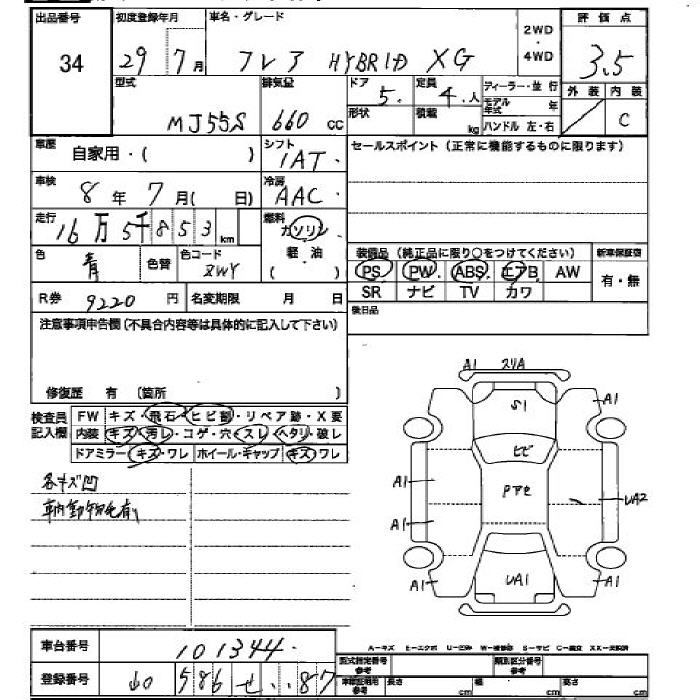 出品番号 初度登録年月 車名・グレード 2WD・4WD 評価点
34 29 7月 フレア HYBRID XG 3.5
型式 排気量 ドア 定員 ディーラー・並行 外装 内装
MJ55S 660 cc 5. 4.人 モデル年式 年 C
形状 積載 kg ハンドル 左・右
車歴 自家用・( ) シフト IAT・ セールスポイント(正常に機能するものに限ります)
車検 8年 7月( 日) 冷房 AAC・
走行 16万5千853km 燃料 ガソリン・軽油( )
色 青 色替 色コード ZWY
装備品(純正品に限り○をつけてください) 新車保証書
PS PW ABS エアB AW 有・無
R券 9220 円 名変期限 月 日 SR ナビ TV カワ
後日品
注意事項申告欄(不具合内容等は具体的に記入して下さい)
修復歴 有 (箇所 )
検査員記入欄 FW キズ・飛石・ヒビ割・リペア跡・X要
内装 キズ・汚レ・コゲ・穴・スレ・ヘタリ・破レ
ドアミラー キズ・ワレ ホイール・キャップ キズ・ワレ
各キズ凹
車内動物毛有
A1 スリA
S1 A1
ヒビ
A1 Pアセ UA2
A1
A1 UA1 A1
車台番号 101344・
A-キズ E-エクボ U-凹み W-補修跡 S-サビ C-腐食 XX-交換済
登録番号 586 せ ・・87
型式指定番号 参考 類別区分番号 参考
車庫証明用 参考 長さ cm 幅 cm 高さ cm